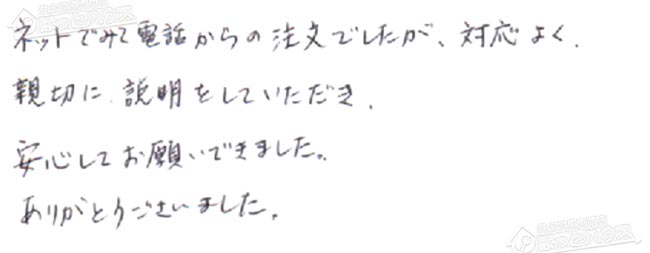 ネットでみて電話からの注文でしたが、対応よく、
親切に説明をしていただき、
安心してお願いできました。
ありがとうございました。